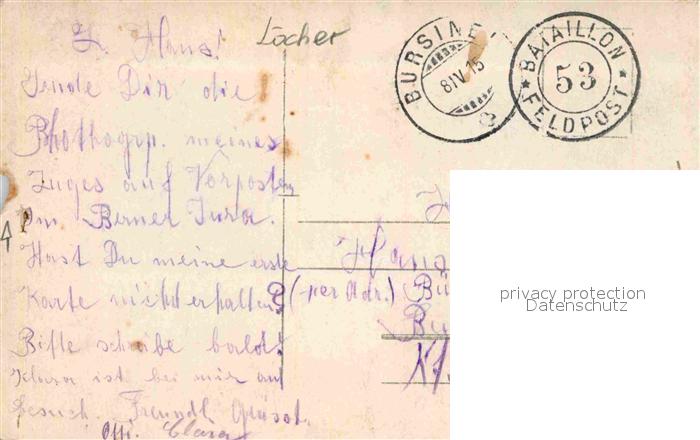 L. Hans!
Löcher
Sende Dir die
Phothogrp. meines
Zuges auf Vorposten
im Berner Jura.
Hast Du meine erste
Karte nicht erhalten?
Bitte schreibe bald!
Klara ist bei mir auf
besuch. Freundl. Grüsst.
Clara
BURSINE
8 IV 15
BATAILLON
53
FELDPOST
Hans
(per Adr.) Bü
Bu
Kt.
privacy protection
Datenschutz